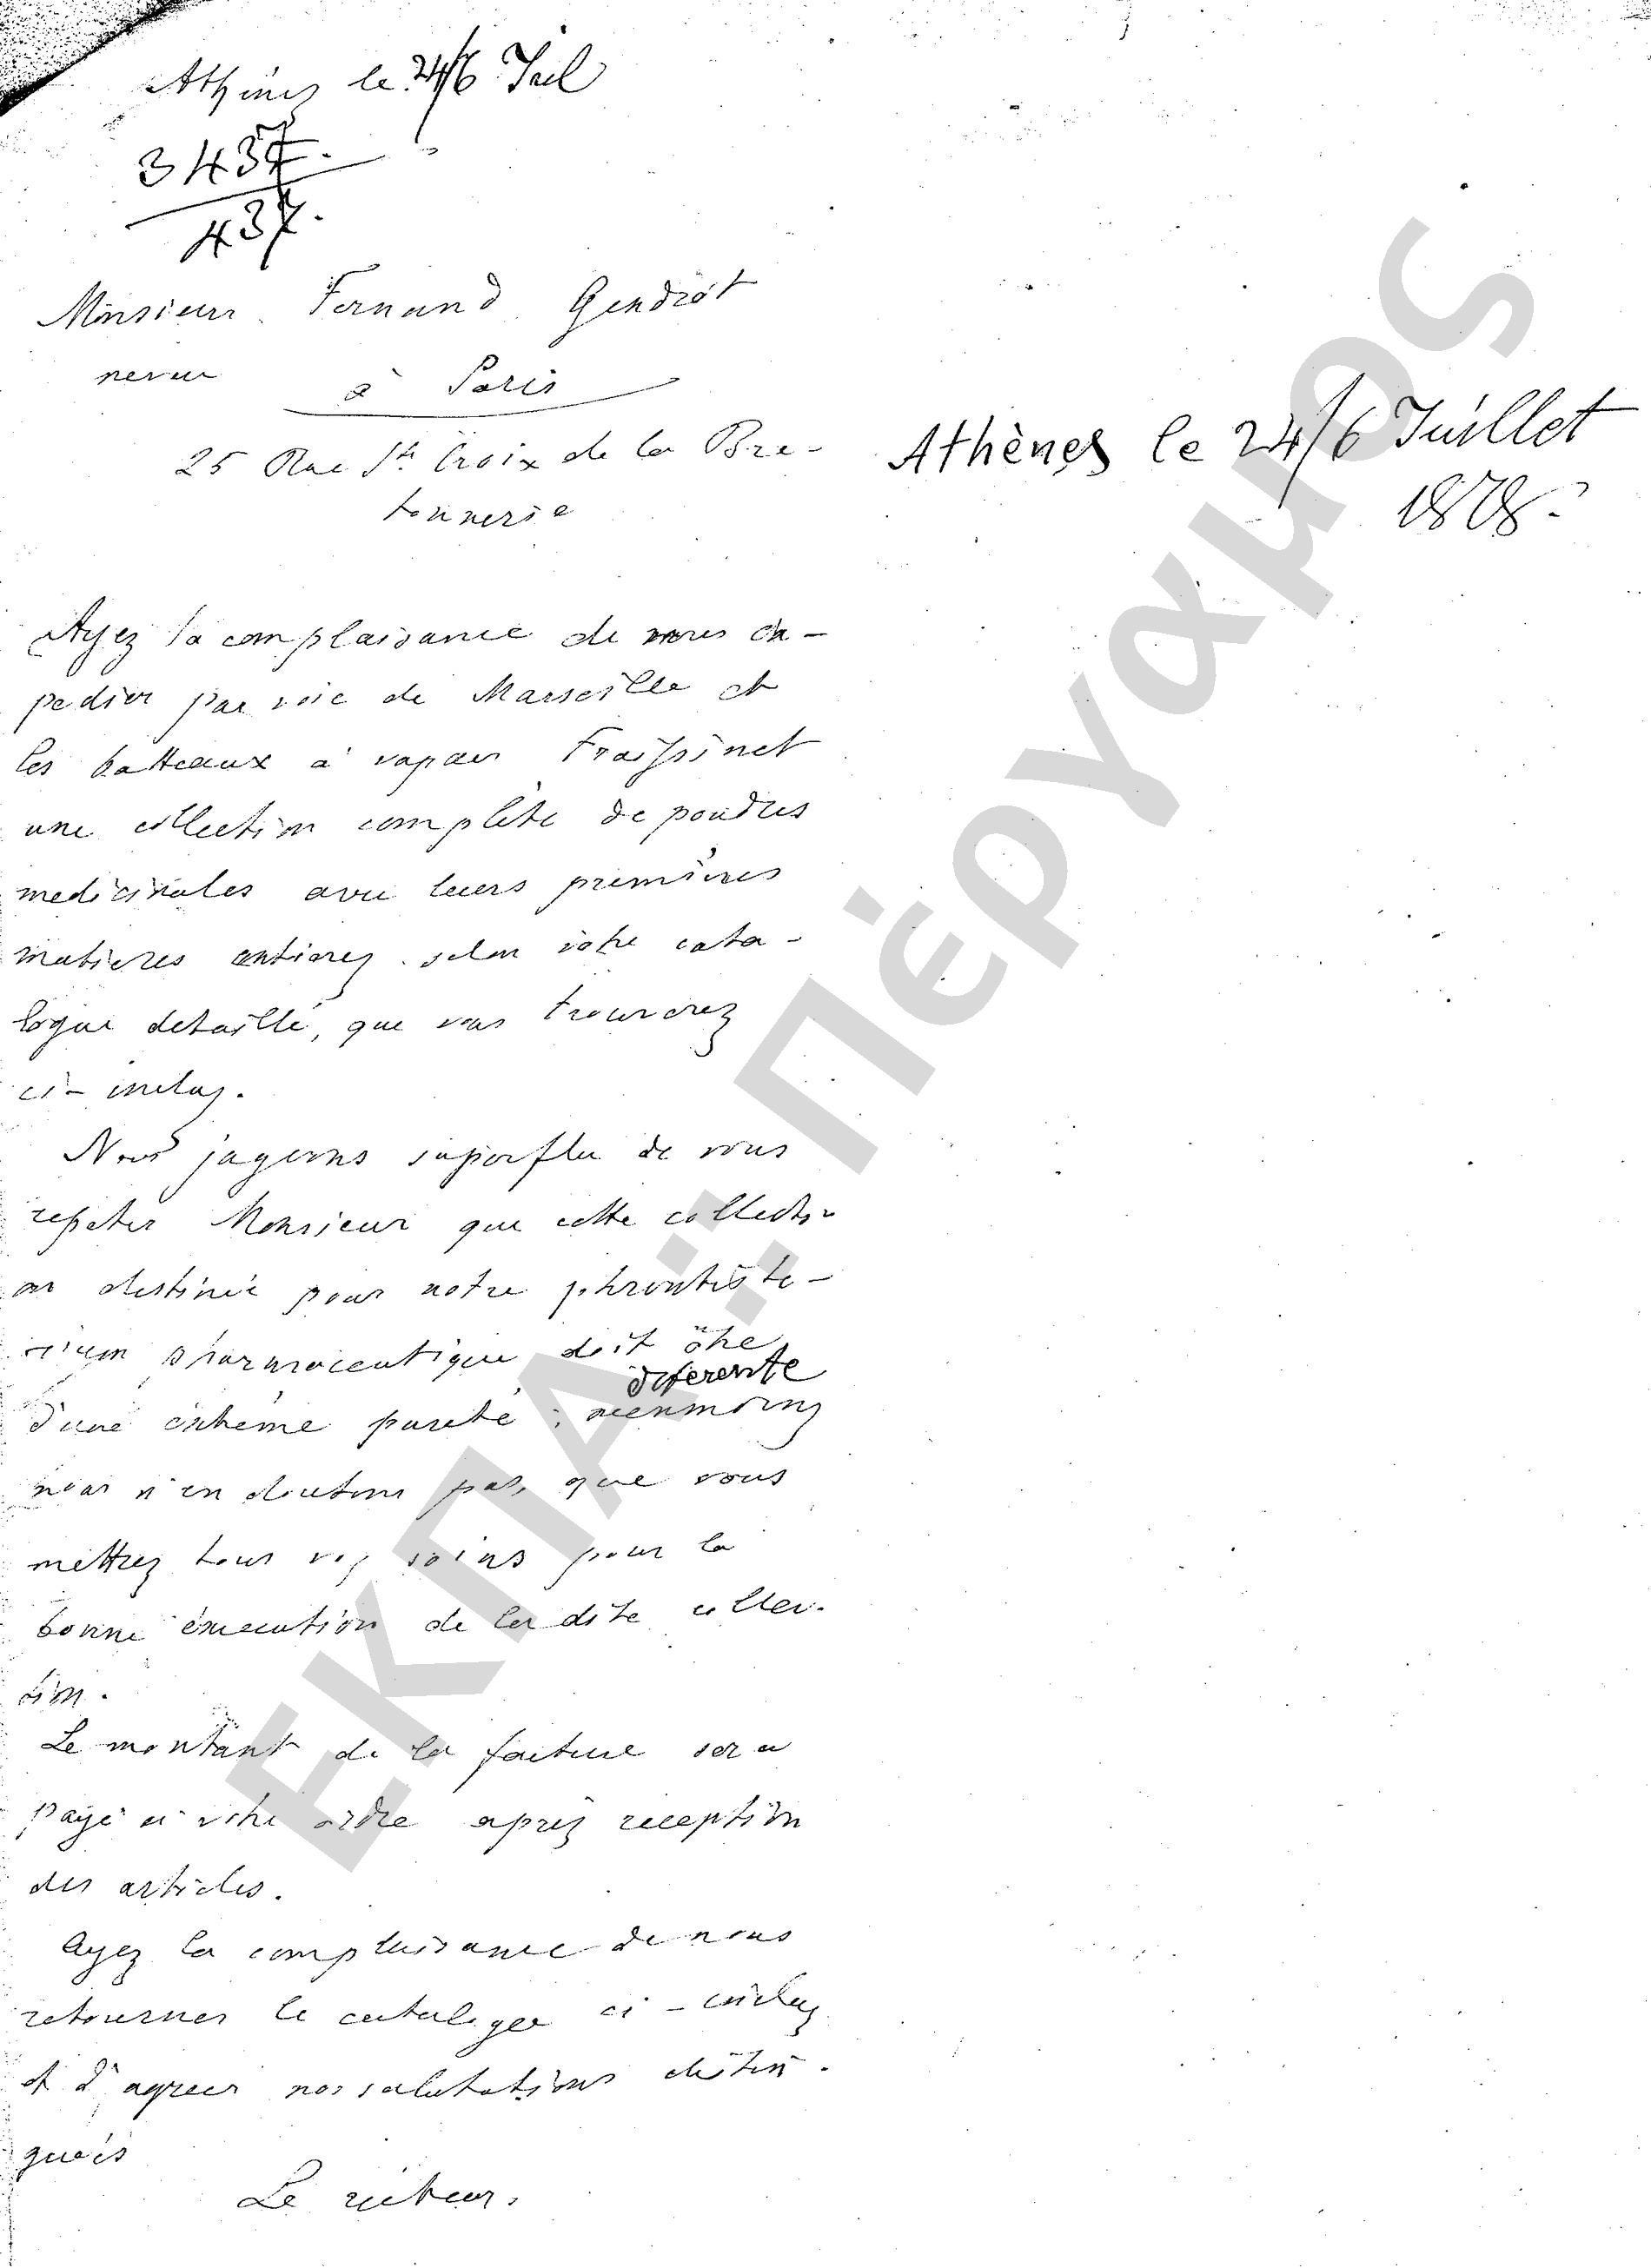 Athènes le 24/6 Juil
3437.
437.
Monsieur Fernand Gendrot
neveu
à Paris
25 Rue St. Croix de la Bre-
tonnerie
Athènes le 24/6 Juillet
1878.
Ayez la complaisance de nous ex-
pedier par voie de Marseille et
les batteaux à vapeur Fraissinet
une collection complète de poudres
medicinales avec leurs premières
matieres entieres selon votre cata-
logue detaillé, que vous trouverez
ci-inclus.
Nous jugeons superflu de vous
repeter Monsieur que cette collecti-
on destinée pour notre phrontiste-
rium pharmaceutique doit être
diferente
d'une extrême pureté; neenmoins
nous n'en doutons pas, que vous
mettrez tous vos soins pour la
bonne éxecution de la dite collec-
tion.
Le montant de la facture sera
payé à votre ordre après reception
des articles.
Ayez la complaisance de nous
retourner le catalogue ci-inclus
et d'agreer nos salutations distin-
gueés
Le recteur.
ΕΚΠΑ :: Πέργαμος